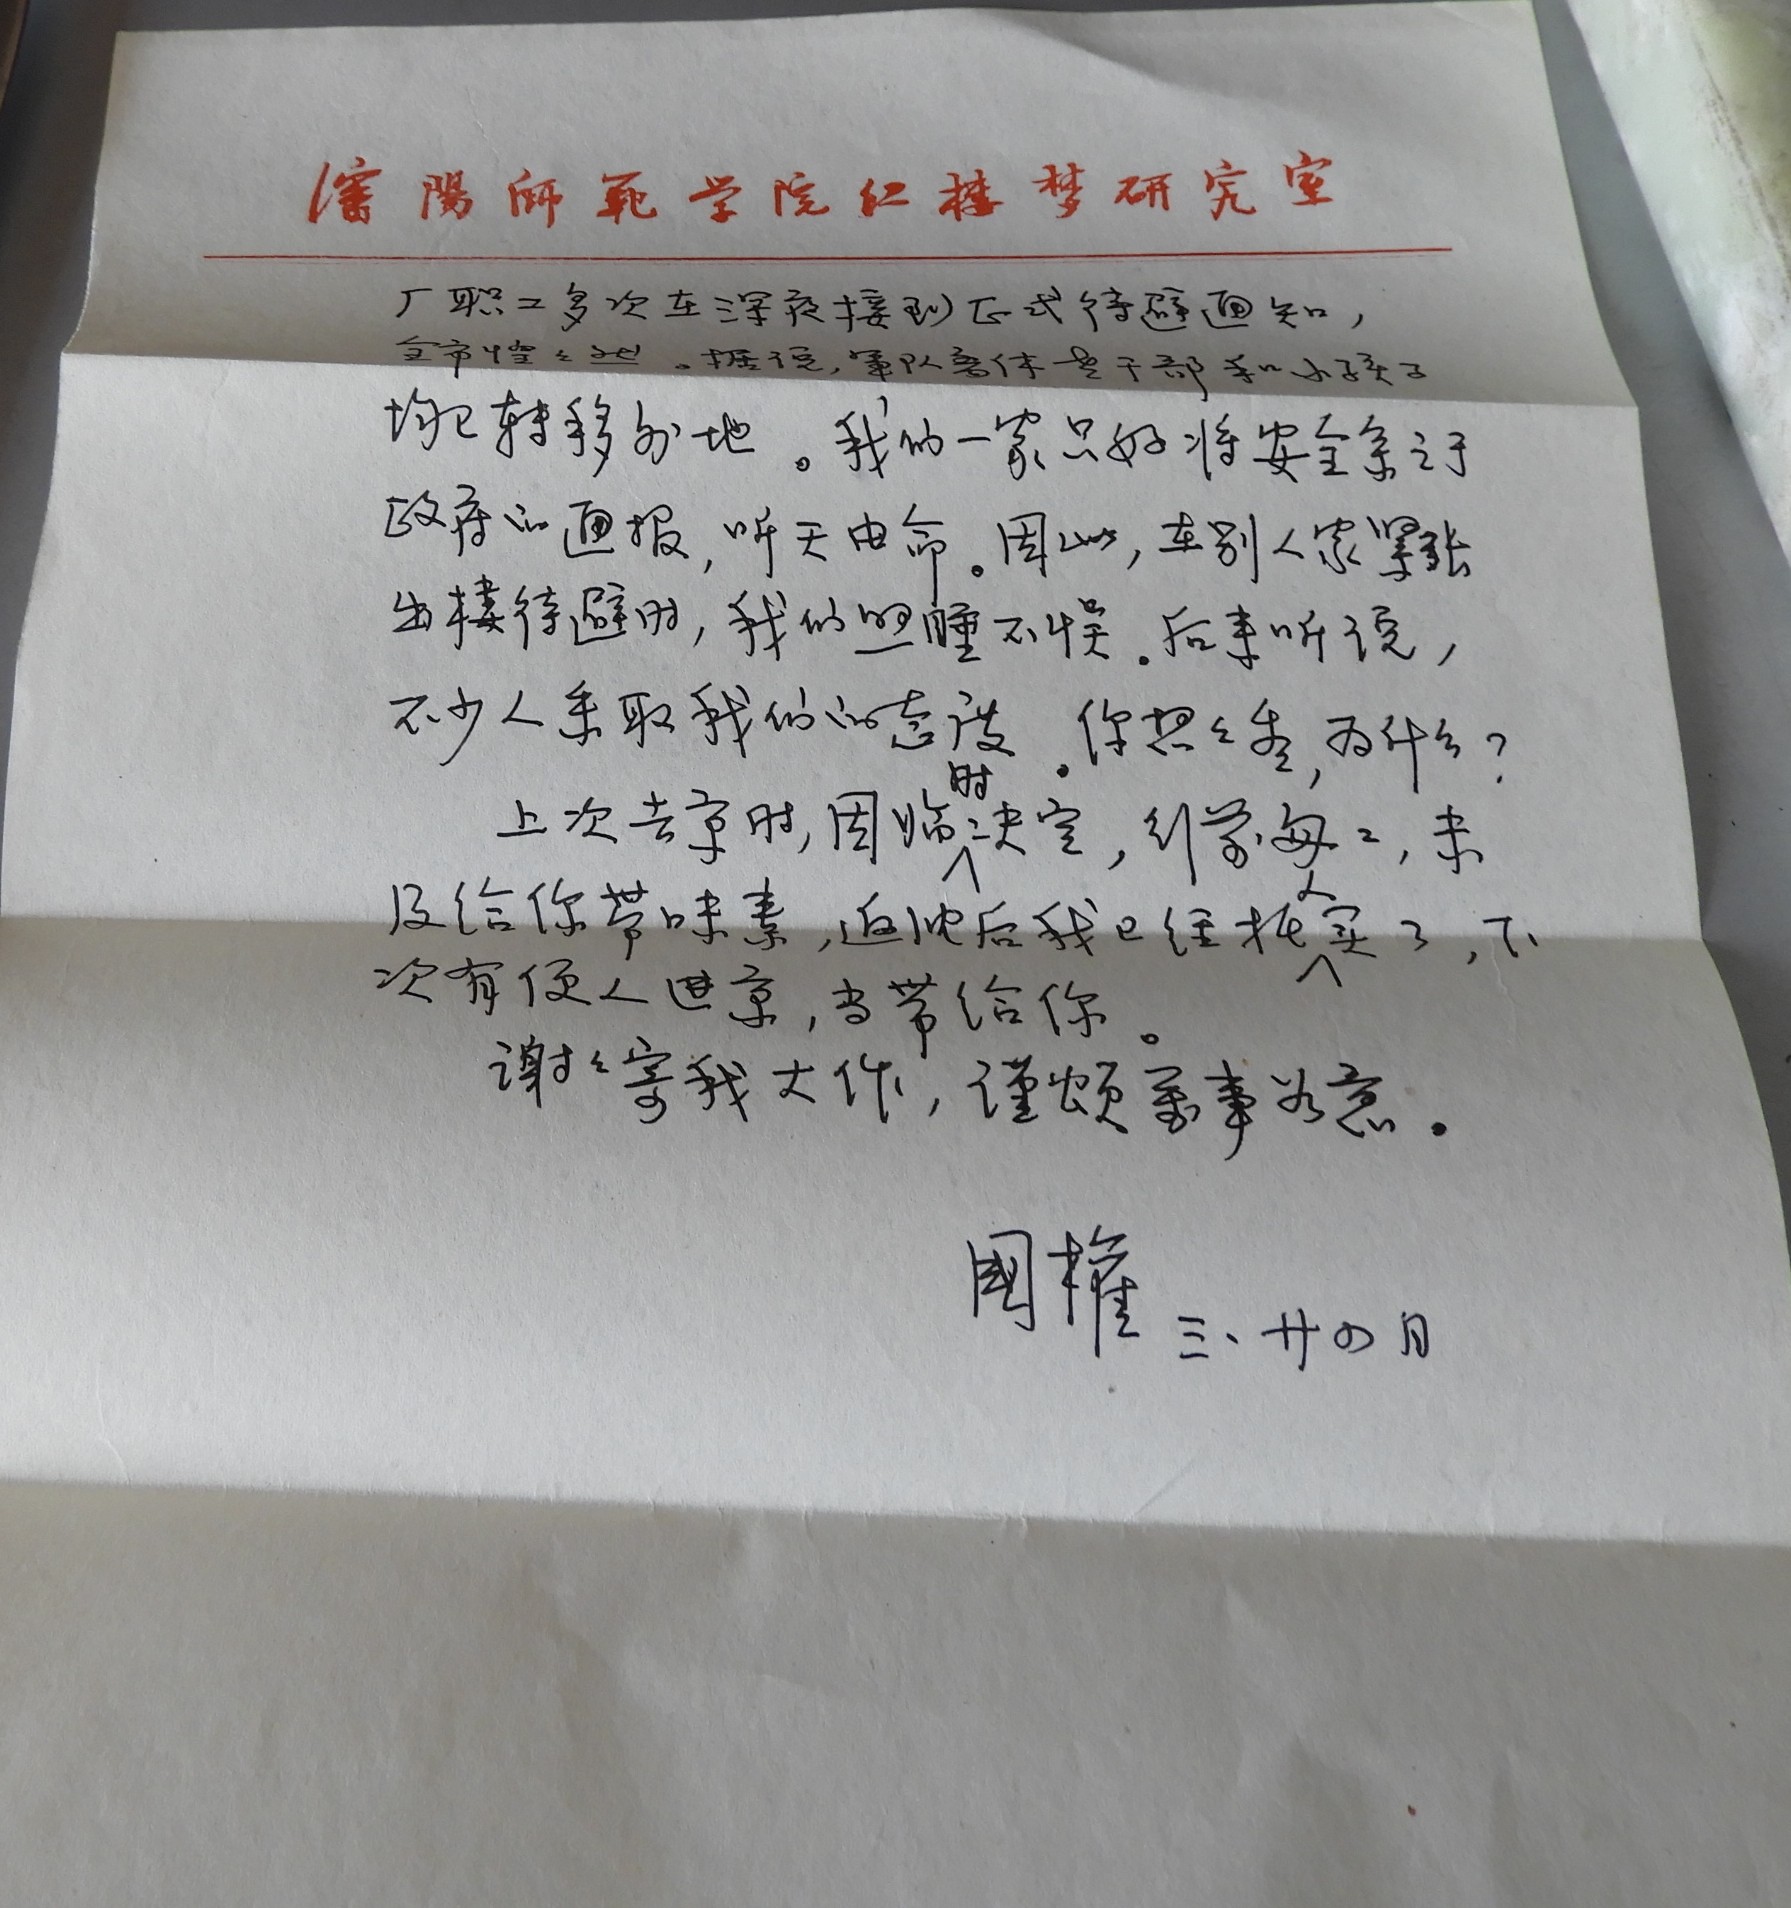 瀋陽师范学院红楼梦研究室
厂职工多次在深夜接到正式待避通知，
全市惶々地。据说，军队离休老干部和小孩子
均已转移外地。我们一家只好将安全系之于
政府的通报，听天由命。因此，在别人家紧张
出楼待避时，我们照睡不误。后来听说，
不少人采取我们的态度。你想々看，为什么？
上次去京时，因临时决定，行前匆々，未
及给你带味素，返沈后我已经托人买了，下
次有便人进京，当带给你。
谢々寄我大作，谨颂万事如意。
国权 三、廿四日